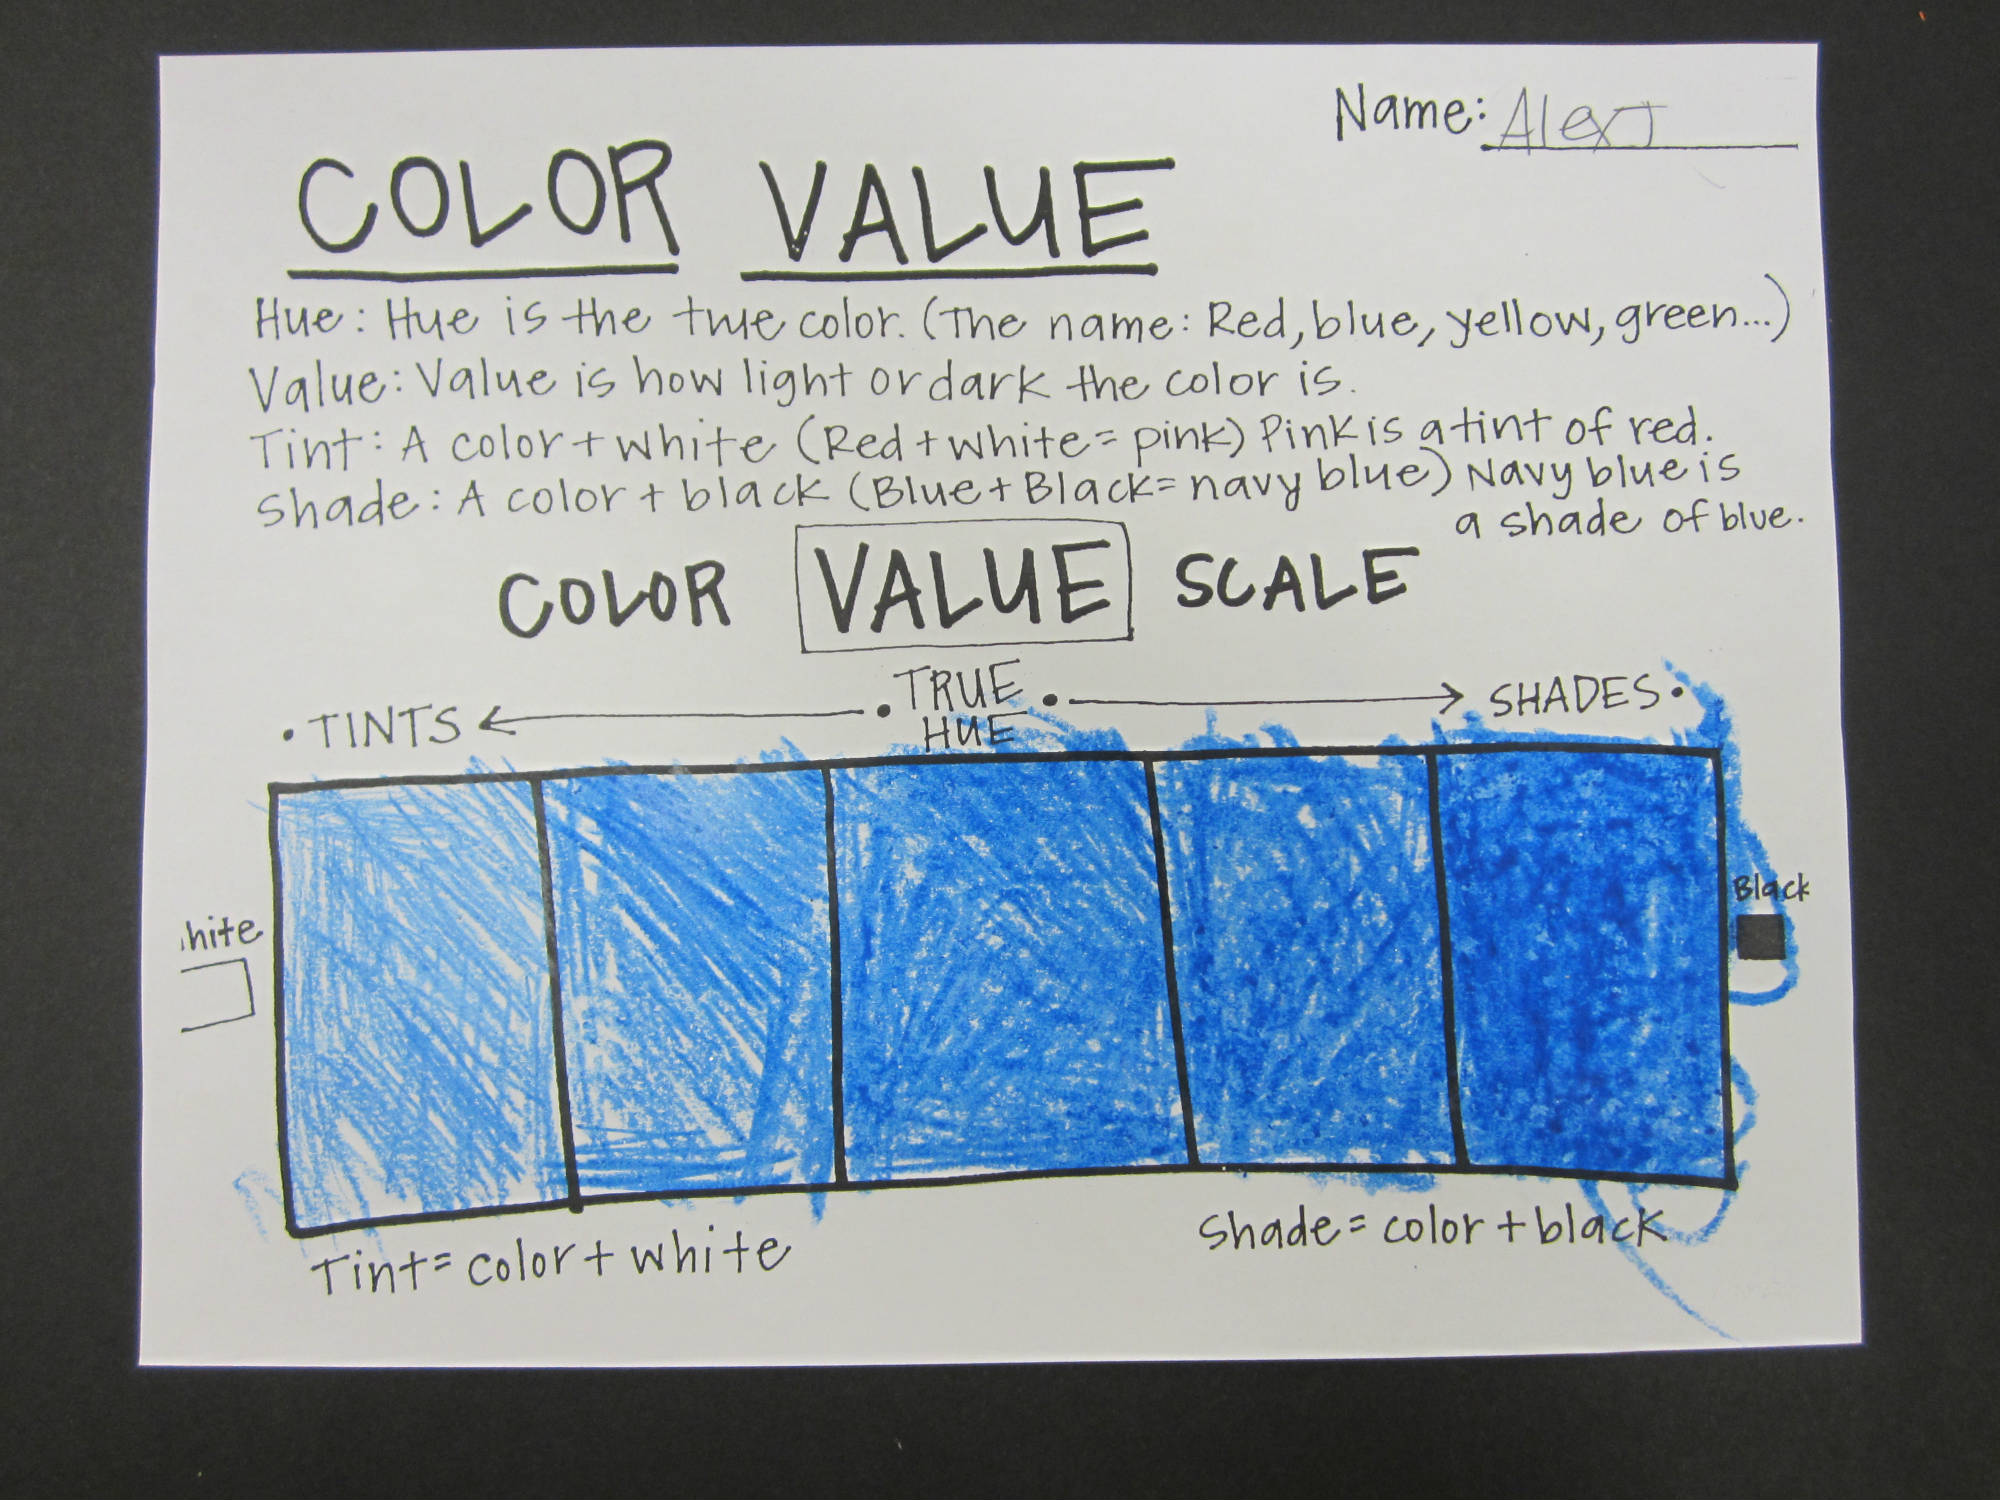 Name: Alex J
COLOR VALUE
Hue: Hue is the true color. (The name: Red, blue, yellow, green...)
Value: Value is how light or dark the color is.
Tint: A color + white (Red + white = pink) Pink is a tint of red.
Shade: A color + black (Blue + Black = navy blue) Navy blue is
a shade of blue.
COLOR VALUE SCALE
• TINTS ← • TRUE HUE • → SHADES •
hite
Black
Tint = color + white
Shade = color + black